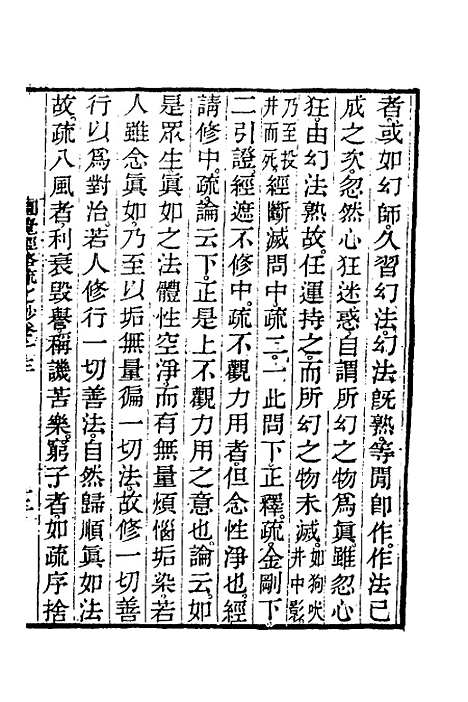 者。或如幻師。久習幻法。幻法既熟。等閒即作。作法已
成之次。忽然心狂迷惑。自謂所幻之物爲眞。雖忽心
狂。由幻法熟故。任運持之。而所幻之物未滅。如狗吠井中影
乃至投井而死。經斷滅問中。疏二。一此問下。正釋。疏金剛下。
二引證。經遮不修中。疏不觀力用者。但念性淨也。經
請修中。疏論云下。正是上不觀力用之意也。論云。如
是眾生眞如之法。體性空淨。而有無量煩惱垢染。若
人雖念眞如。乃至以垢無量徧一切法。故修一切善
行以爲對治。若人修行一切善法。自然歸順眞如法
故。疏八風者。利衰毀譽。稱譏苦樂。窮子者。如疏序捨
圓覺經略疏之鈔卷十三